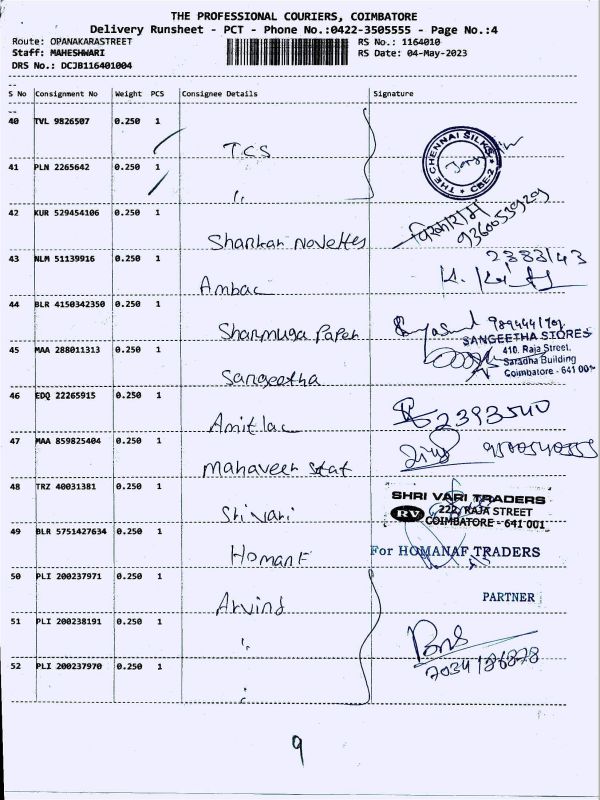 THE PROFESSIONAL COURIERS, COIMBATORE
Delivery Runsheet - PCT - Phone No.:0422-3505555 - Page No.:4
Route: OPANAKARASTREET RS No.: 1164010
Staff: MAHESHWARI RS Date: 04-May-2023
DRS No.: DCJB116401004
S No Consignment No Weight PCS Consignee Details Signature
40 TVL 9826507 0.250 1 TCS
THE CHENNAI SILKS CBE-2
41 PLN 2265642 0.250 1 "
42 KUR 529454106 0.250 1 Shankar Novettes
43 NLM 51139916 0.250 1 Ambac 2383143
44 BLR 4150342350 0.250 1 Shanmuga Paper
45 MAA 288011313 0.250 1 Sangeetha
SANGEETHA STORES
410, Raja Street,
Saradha Building
Coimbatore - 641 001
46 EDQ 22265915 0.250 1 Amitlac 2393540
47 MAA 859825404 0.250 1 Mahaveer Stat
48 TRZ 40031381 0.250 1 Srivari
SHRI VARI TRADERS
RV 222, RAJA STREET
COIMBATORE - 641 001
49 BLR 5751427634 0.250 1 HomanF
For HOMANAF TRADERS
50 PLI 200237971 0.250 1 Arvind
PARTNER
51 PLI 200238191 0.250 1 "
52 PLI 200237970 0.250 1 "
9